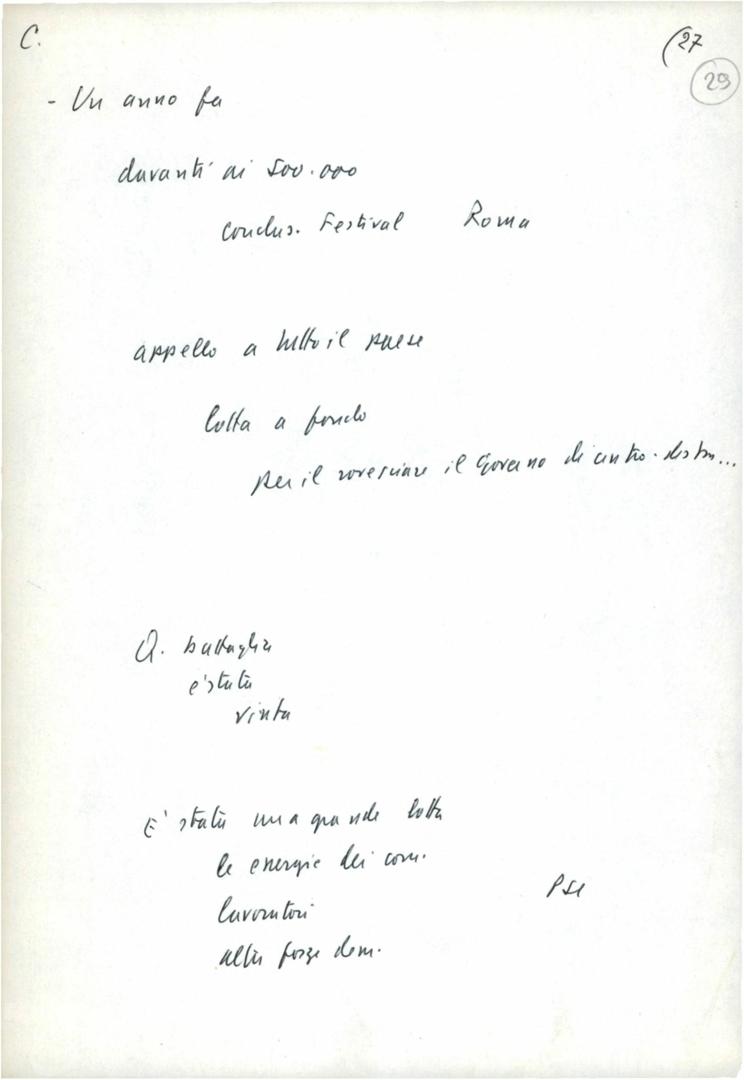 C.
(27
29
- Un anno fa
davanti ai 500.000
conclus. Festival Roma
appello a tutto il paese
lotta a fondo
per il rovesciare il Governo di centro-destra...
Q. battaglia
è stata
vinta
E' stata una grande lotta
le energie dei com.
lavoratori
PSI
altre forze dem.